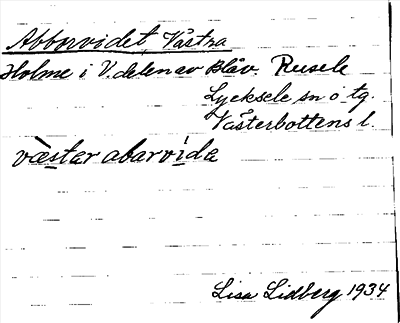 Abborvidet, Västra
Holme i V. delen av Blåv. Rusele
Lycksele sn o tg.
Västerbottens l.
vèstar abarvìda
Lisa Lidberg 1934